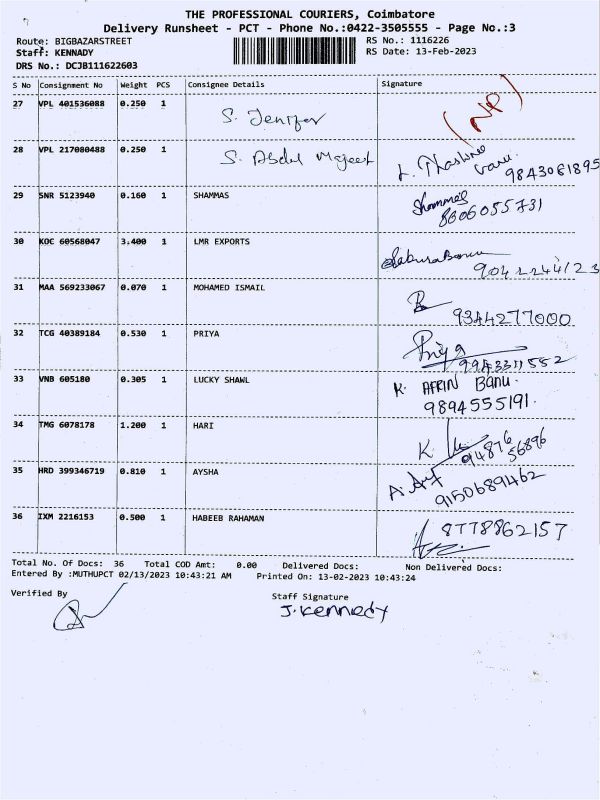 THE PROFESSIONAL COURIERS, Coimbatore
Delivery Runsheet - PCT - Phone No.:0422-3505555 - Page No.:3
Route: BIGBAZARSTREET RS No.: 1116226
Staff: KENNADY RS Date: 13-Feb-2023
DRS No.: DCJB111622603
S No Consignment No Weight PCS Consignee Details Signature
27 VPL 401536088 0.250 1 S. Jenifer (NP)
28 VPL 217080488 0.250 1 S. Abdul Majeet L.
9843061895
29 SNR 5123940 0.160 1 SHAMMAS Shammas
8606055731
30 KOC 60568047 3.400 1 LMR EXPORTS
9042244123
31 MAA 569233067 0.070 1 MOHAMED ISMAIL
9344277000
32 TCG 40389184 0.530 1 PRIYA Priya
9943311552
33 VNB 605180 0.305 1 LUCKY SHAWL K. AFRIN BANU.
9894555191.
34 TMG 6078178 1.200 1 HARI K
9487656896
35 HRD 399346719 0.810 1 AYSHA
9150689462
36 IXM 2216153 0.500 1 HABEEB RAHAMAN 8778862157
Total No. Of Docs: 36 Total COD Amt: 0.00 Delivered Docs: Non Delivered Docs:
Entered By :MUTHUPCT 02/13/2023 10:43:21 AM Printed On: 13-02-2023 10:43:24
Verified By Staff Signature
J. Kennedy